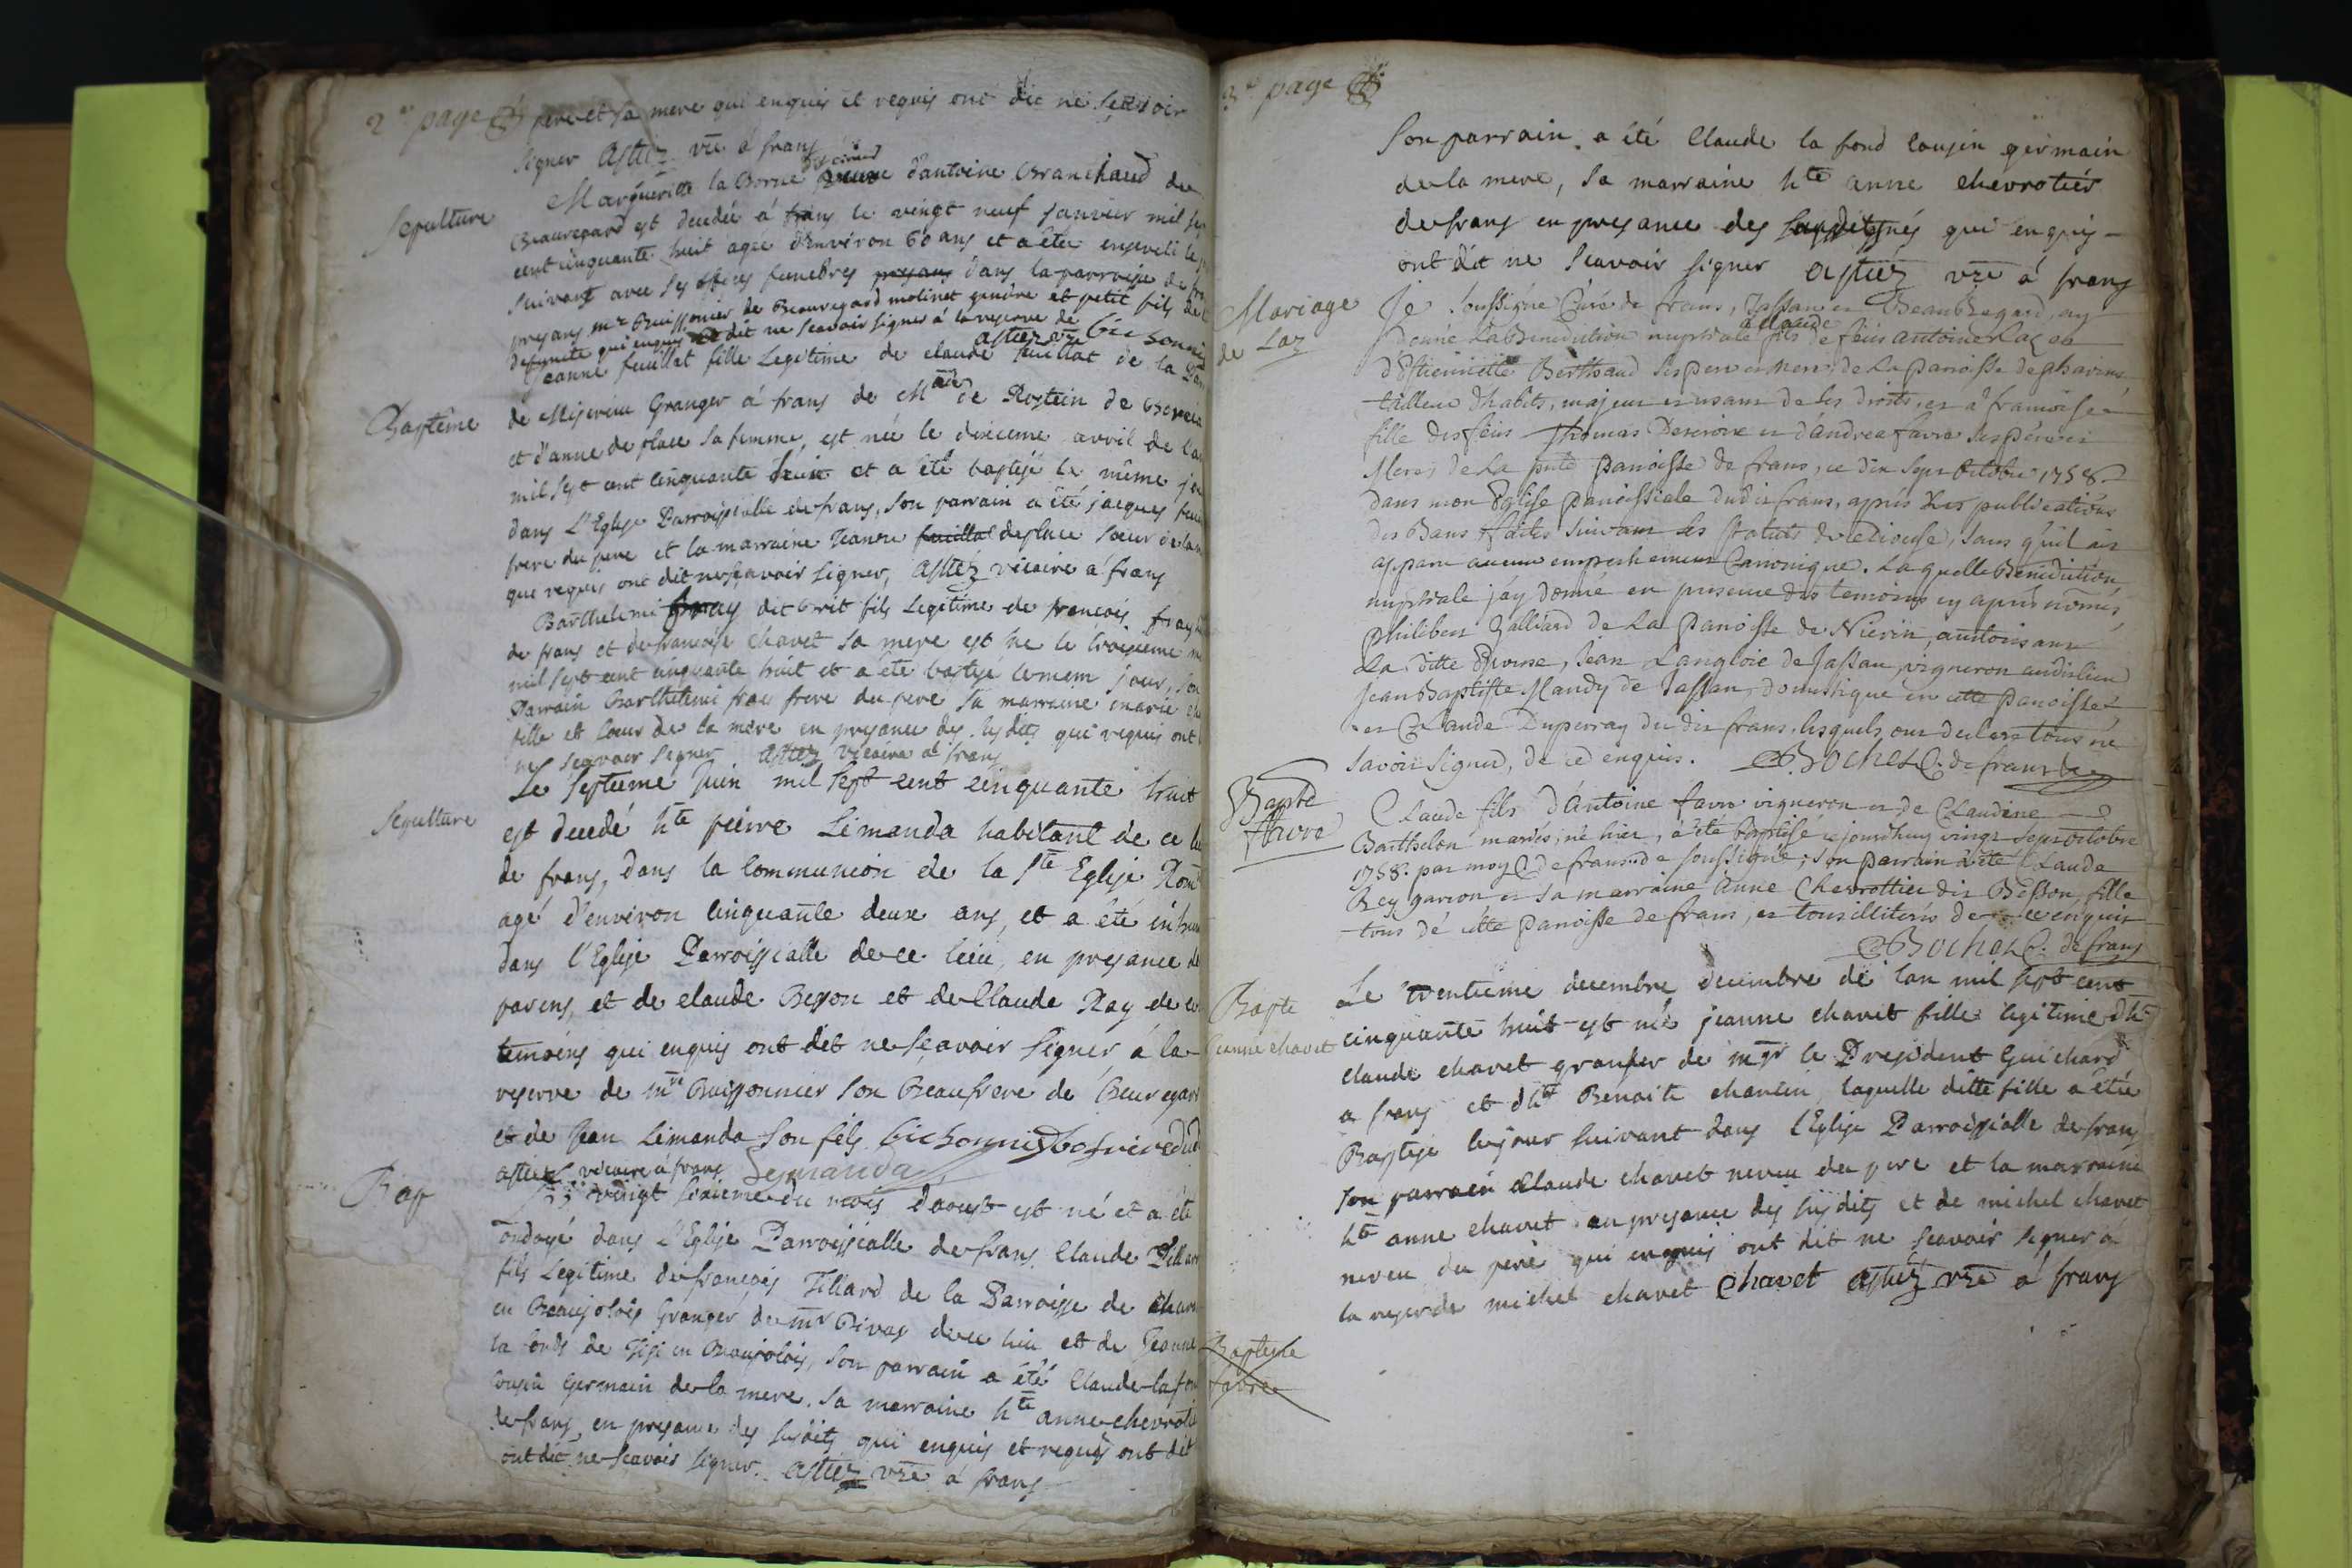 2e page
pere et sa mere qui enquis et requis ont dit ne sçavoir
signer astiez vre à frans
Sepulture
Margueritte la Borne veuve d'antoine Branchaud de
Beauregard est decedée à frans le vingt neuf janvier mil sep
cent cinquante huit agée d'Environ 60 ans et a été enseveli le
suivant avec les offices funebres dans la parroisse de fran
presans mr Buissonier de Beauregard molinet gendre et petit fils de l
defunte qui enquis dit ne scavoir signer à la reserve de
astiez vre bissonnier
Baptême
Jeanne feuillat fille Legitime de claude feuillat de la Par
de Miserieu Granger à frans de Made de Rostein de
et d'anne de place sa femme, est née le dixieme avril de l'an
mil sept cent cinquante huit et a été baptisé le même jou
dans L'Eglise Parroissialle de frans, son parrain a été jacques feui
frere du pere et la marraine Jeanne feuillat deplace sœur de la m
que requis ont dit ne sçavoir signer, astiez vicaire à frans
Barthelemi fray dit brit fils Legitime de francois fray
de frans et de francoise chavet sa mere est né le troisieme
mil sept cent cinquante huit et a été baptisé le mem jour, son
Parrain Barthelemi fray frere du pere sa marraine marie
fille et sœur de la mere en presance des susdits qui requis ont
ne sçavoir signer astiez vicaire à frans
Sepulture
Le septieme juin mil sept cent cinquante huit
est decedé hte pierre Limanda habitant de ce li
de frans, dans la Communion de la Ste Eglise Rom
agé d'environ cinquante deux ans, et a été inhum
dans l'Eglise Parroissialle de ce lieu, en presance de
parens, et de claude Besson et de Claude Ray de ce
temoins qui enquis ont dit ne sçavoir signer à la
reserve de mre Buissonnier son Beaufrere de Beuregard
et de jean Limanda son fils.
astiez vicaire à frans Lemanda
Bap
Le vingt sixieme du mois d'aoust est né et a été
ondoyé dans L'Eglise Parroissialle de frans Claude Tillard
fils Legitime de françois Tillard de la Parroisse de
en Beaujolois Granger de mr Rivas de ce lieu et de Jeanne
la fonds de Gizi en Beaujolois, son parrain a été Claude lafon
cousin Germain de la mere. sa marraine hte anne chevrotie
de frans, en presance des susdits qui enquis et requis ont dit
ont dit ne scavoir signer. astiez vre à frans
3e page
Son parrain a été Claude la fond cousin germain
de la mere, sa marraine hte anne chevrotier
de frans en presance des qui enquis
ont dit ne scavoir signer astiez vre à frans
Mariage
de Laz
Je soussigné Curé de frans, Jassan et Beauregard, ay
donné La Benediction nuptiale à claude fils de feus antoine Laz et
d'Etiennette Berthaud ses pere et mere, de La paroisse de
tailleur d'habits, majeur et usant de ses droits, et à francoise
fille des feus Thomas Descroix et d'andrea favre ses père et
Mere, de La pnte paroisse de frans, ce dix sept octobre 1758
dans mon Eglise paroissiale dudit frans, après les publications
des Bans faites suivant les statuts du diocese, sans qu'il ait
apparu aucun empechement Canonique. Laquelle Benediction
nuptiale j'ay donné en presence des temoins cy après només,
philibert Galliard de La paroisse de Nievin, autorisant
La ditte Epouse, Jean Langlois de Jassan, vigneron audit lieu
Jean Baptiste Mandy de Jassan domestique en cette paroisse
et Claude Duperray du dit frans, lesquels ont declaré tous ne
savoir signer, de ce enquis. Bochet C. de frans
Bapte
favre
Claude fils d'Antoine favre vigneron et de Claudine
Barthelon mariés, né hier, a été baptisé ce jourdhuy vingt sept octobre
1758. par moy C. de frans soussigné; son parrain a été Claude
Rey garcon et sa marraine Anne Chevrottier dit Besson, fille
tous de cette paroisse de frans, et tous illiterés de ce enquis
Bochet C. de frans
Bapte
jeanne chavet
Le trentieme decembre decembre de lan mil sept cent
cinquante huit est née jeanne chavet fille legitime d'hte
claude chavet granger de mgr le President Guichard
a frans et d'hte Benoite charlin, laquelle ditte fille a été
Baptisé le jour suivant dans l'Eglise Parroissialle de frans
son parrain Claude chavet neveu du pere et la marraine
hte anne chavet en presance des susdits et de michel chavet
neveu du pere qui enquis ont dit ne scavoir signer à
la reserve de michel chavet Chavet astiez vre à frans
Bapteme
favre